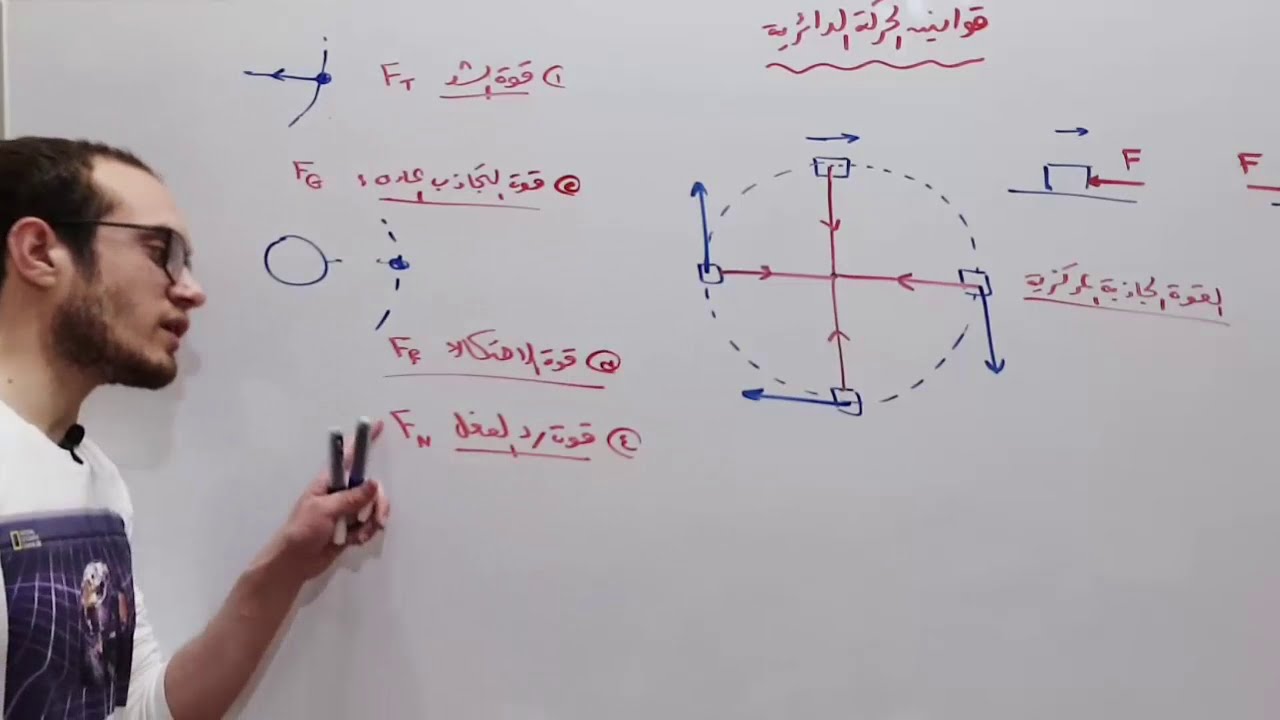 قوانين الحركة الدائرية
١ قوة الشد F_T
٢ قوة التجاذب F_G
٣ قوة الاحتكاك F_f
٤ قوة رد الفعل F_N
F
F
القوة الجاذبة المركزية